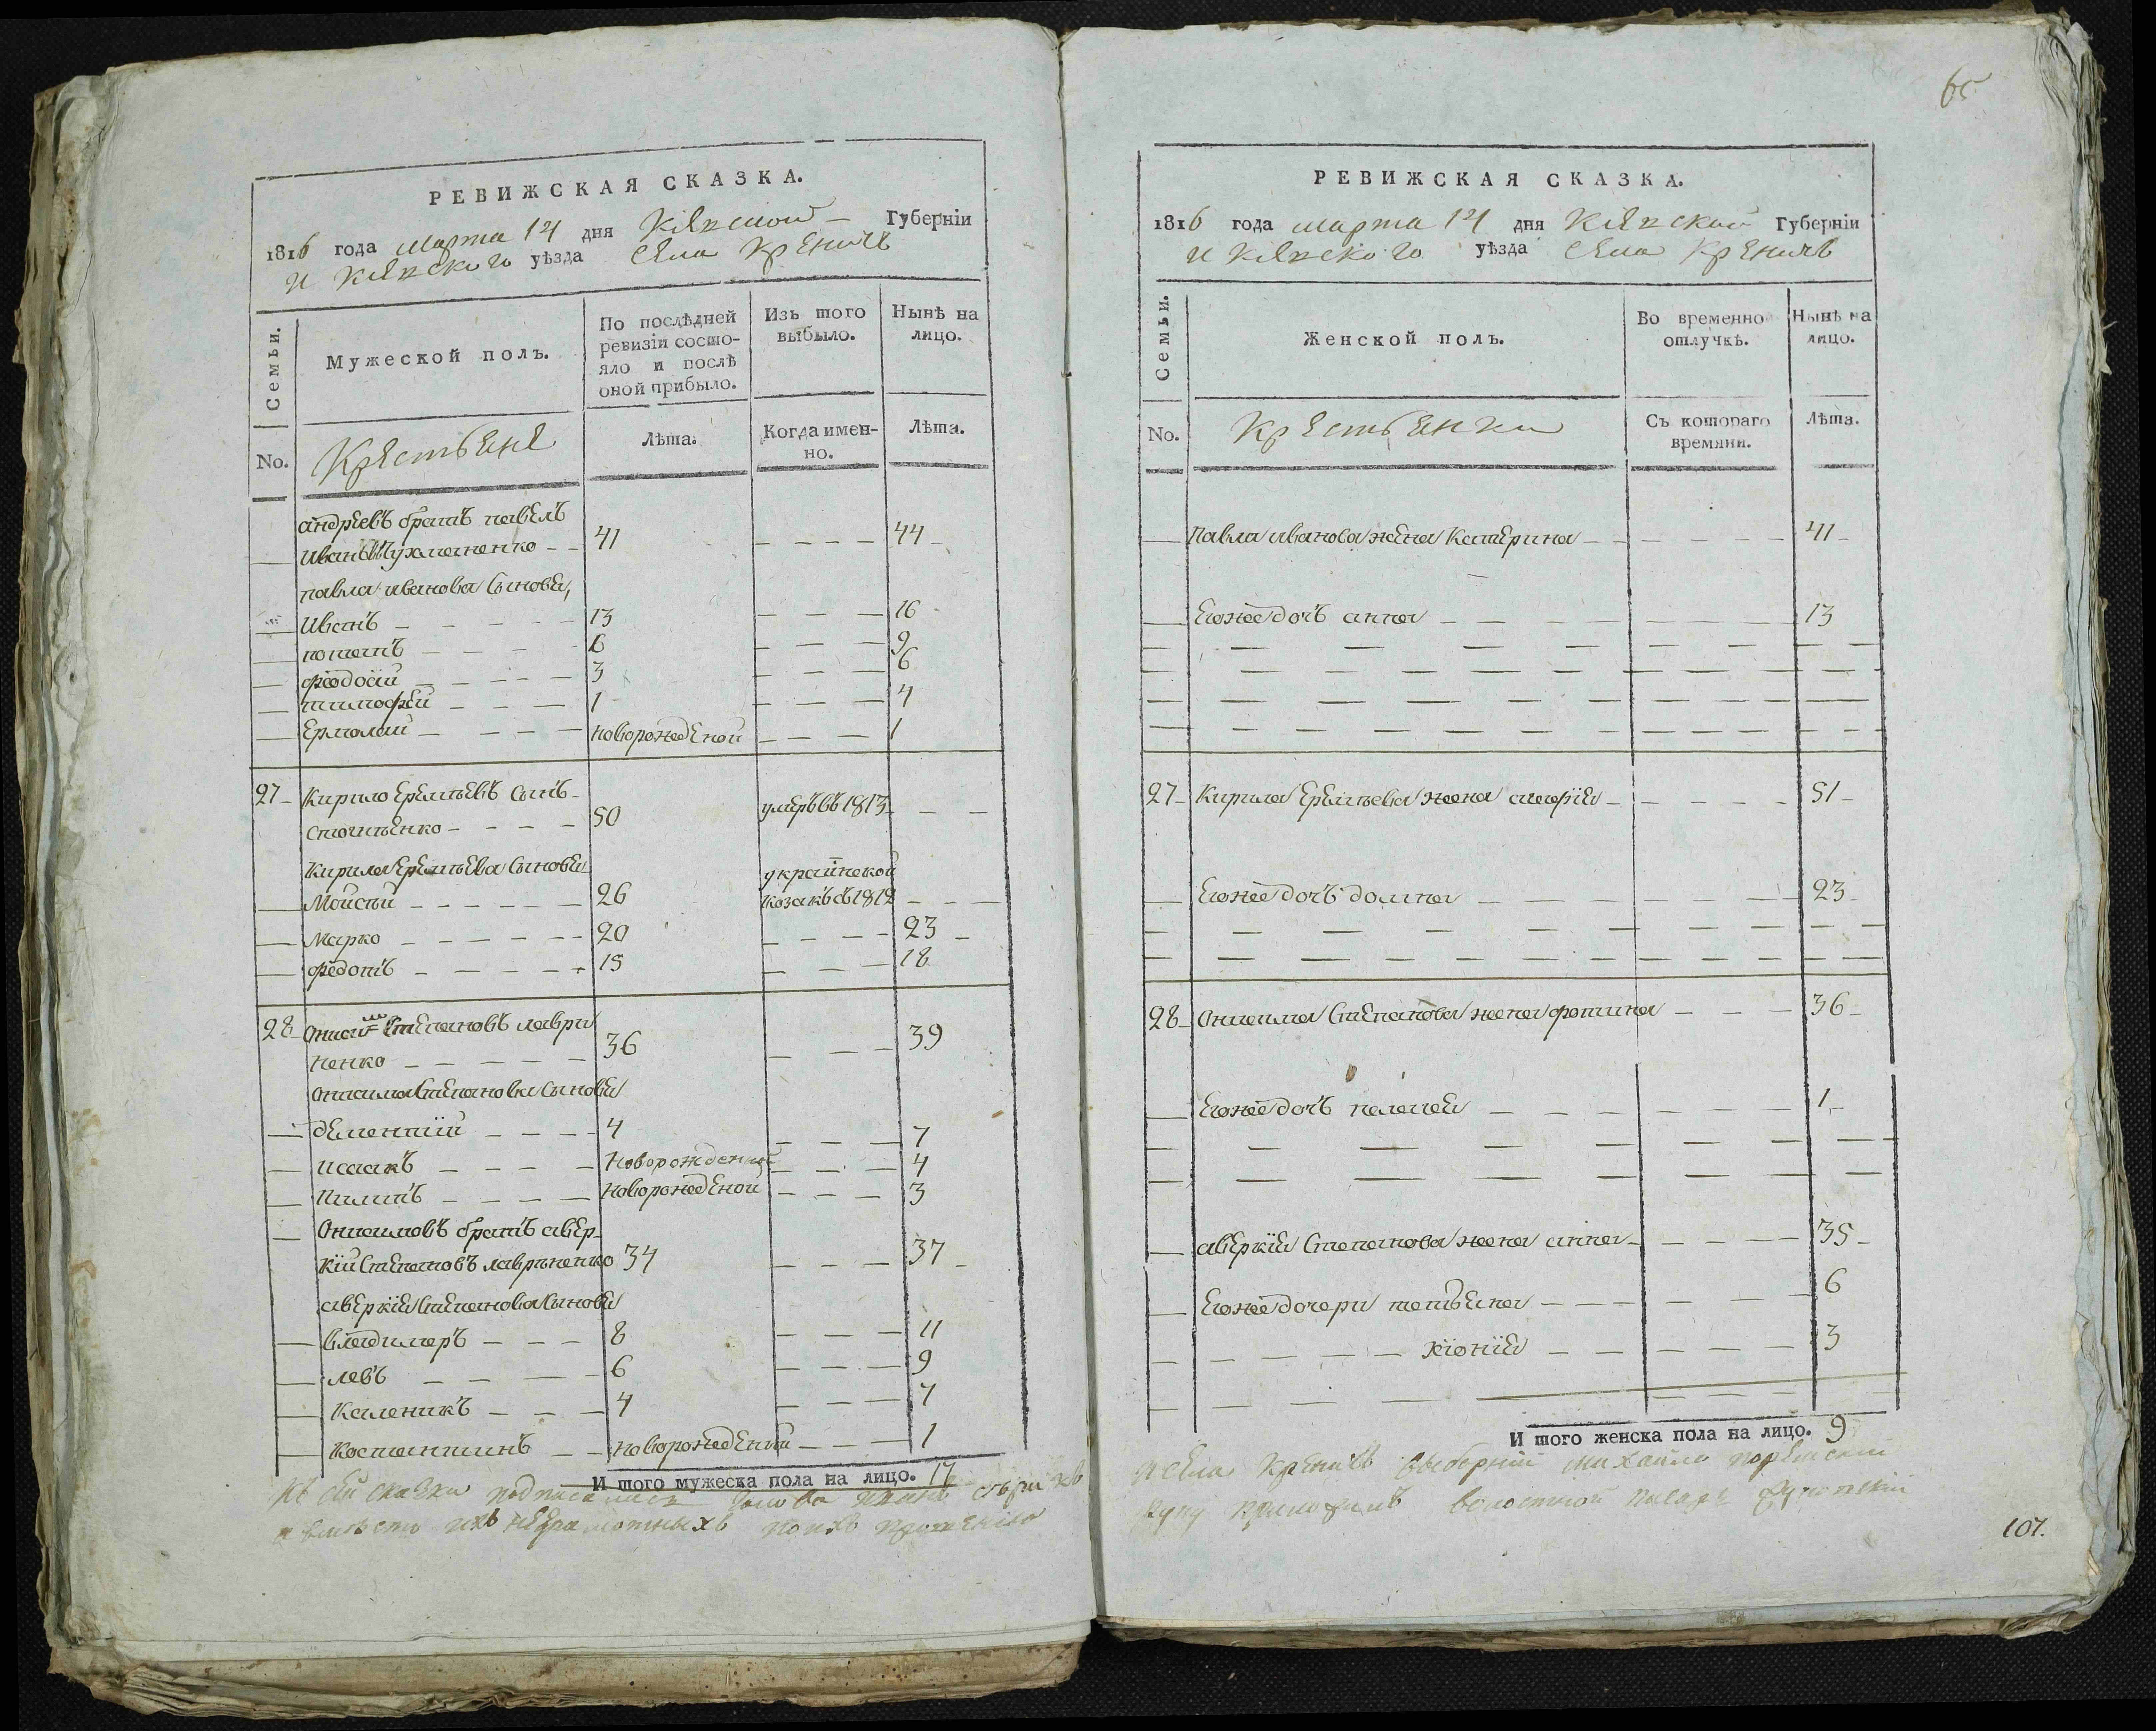 РЕВИЖСКАЯ СКАЗКА.
1816 года марта 14 дня Кіевской Губерніи
и Кіевского уѣзда села Креничъ
Семьи.
Мужеской полъ.
По послѣдней
ревизіи состо-
яло и послѣ
оной прибыло.
Изъ того
выбыло.
Нынѣ на
лицо.
No.
Крестьяне
Лѣта.
Когда имен-
но.
Лѣта.
андреевъ братъ павелъ
Ивановъ 41 44
павла иванова сыновья,
Иванъ 13 16
потапъ 6 9
феодосій 3 6
тимофей 1 4
Ермолай новорожденой 1
27 Кирило Еремѣевъ сынъ
50 умеръ въ 1813
Кирила Еремѣева сыновья
украинской
Мойсѣй 26 козакъ съ 1812
Марко 20 23
федотъ 15 18
28 Онисимъ Степановъ лаври
ненко 36 39
Онисима Степанова сыновья
дементій 4 7
исаакъ Новорожденный 4
Пилипъ новорожденой 3
Онисимовъ братъ авер
кій Степановъ лавриненко 34 37
аверкія Степанова сыновья
владимеръ 8 11
левъ 6 9
Каленикъ 4 7
Костантинъ новорожденый 1
И того мужеска пола на лицо. 17
Къ сей сказки подписались голова
и вмѣсто ихъ неграмотныхъ по ихъ прошенію
65
РЕВИЖСКАЯ СКАЗКА.
1816 года марта 14 дня Кіевской Губерніи
и Кіевского уѣзда села Креничъ
Семьи.
Женской полъ.
Во временной
отлучкѣ.
Нынѣ на
лицо.
No.
Крестьянки
Съ котораго
времяни.
Лѣта.
Павла иванова жена Катерина 41
Егожъ дочь анна 13
27 Кирила Еремѣева жена марія 51
Егожъ дочь домна 23
28 Онисима Степанова жена фотина 36
Егожъ дочь пелагея 1
аверкія Степанова жена анна 35
Егожъ дочери татьяна 6
хіонія 3
И того женска пола на лицо. 9
и села Креничъ выборній михайло
руку приложилъ волостной писарь
107.